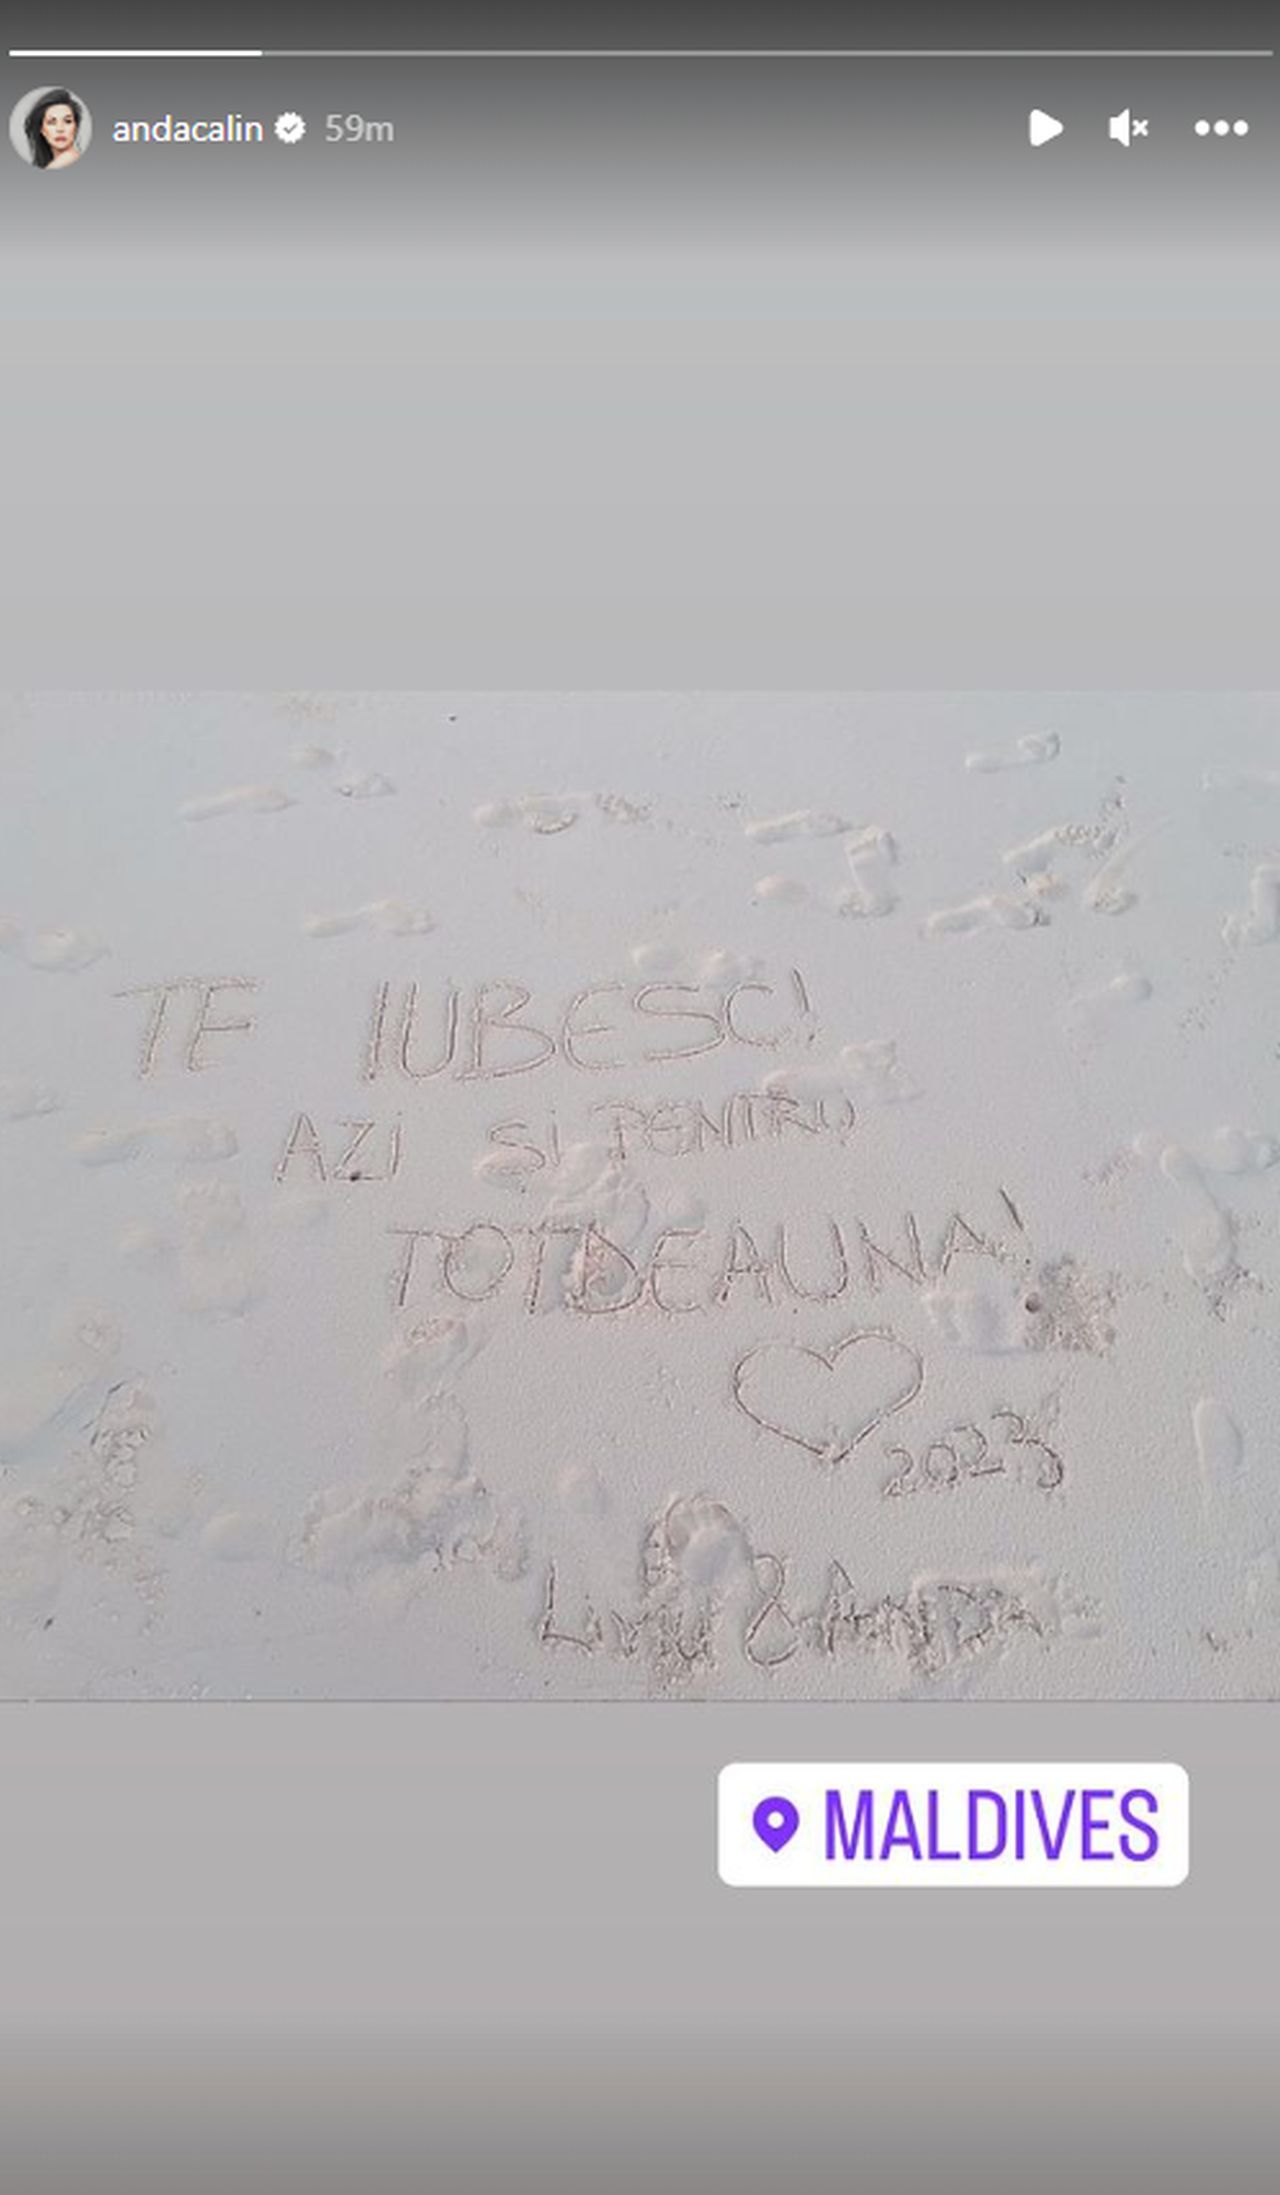 andacalin 59m
TE IUBESC!
AZI SI PENTRU
TOTDEAUNA!
2023
Liviu & ANDA
MALDIVES